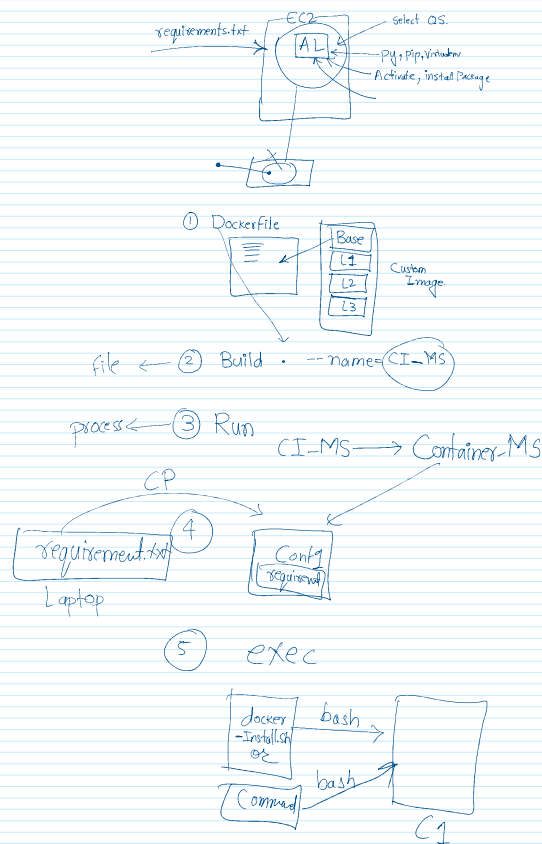 EC2
select OS.
requirements.txt
AL
Py, pip, Virtualenv
Activate, install Package
① Dockerfile
Base
L1
L2
L3
Custom
Image.
file ← ② Build . --name=CI_MS
process ← ③ Run
CI_MS → Container_MS
CP
④
requirement.txt
Laptop
Cont1
⑤ exec
docker
-Install.sh
or
bash
Command
bash
C1